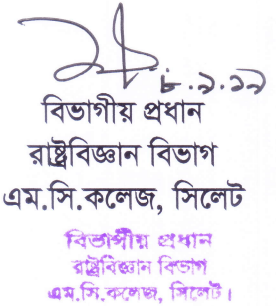 ৮.৯.১৯
বিভাগীয় প্রধান
রাষ্ট্রবিজ্ঞান বিভাগ
এম.সি.কলেজ, সিলেট
বিভাগীয় প্রধান
রাষ্ট্রবিজ্ঞান বিভাগ
এম.সি.কলেজ, সিলেট।